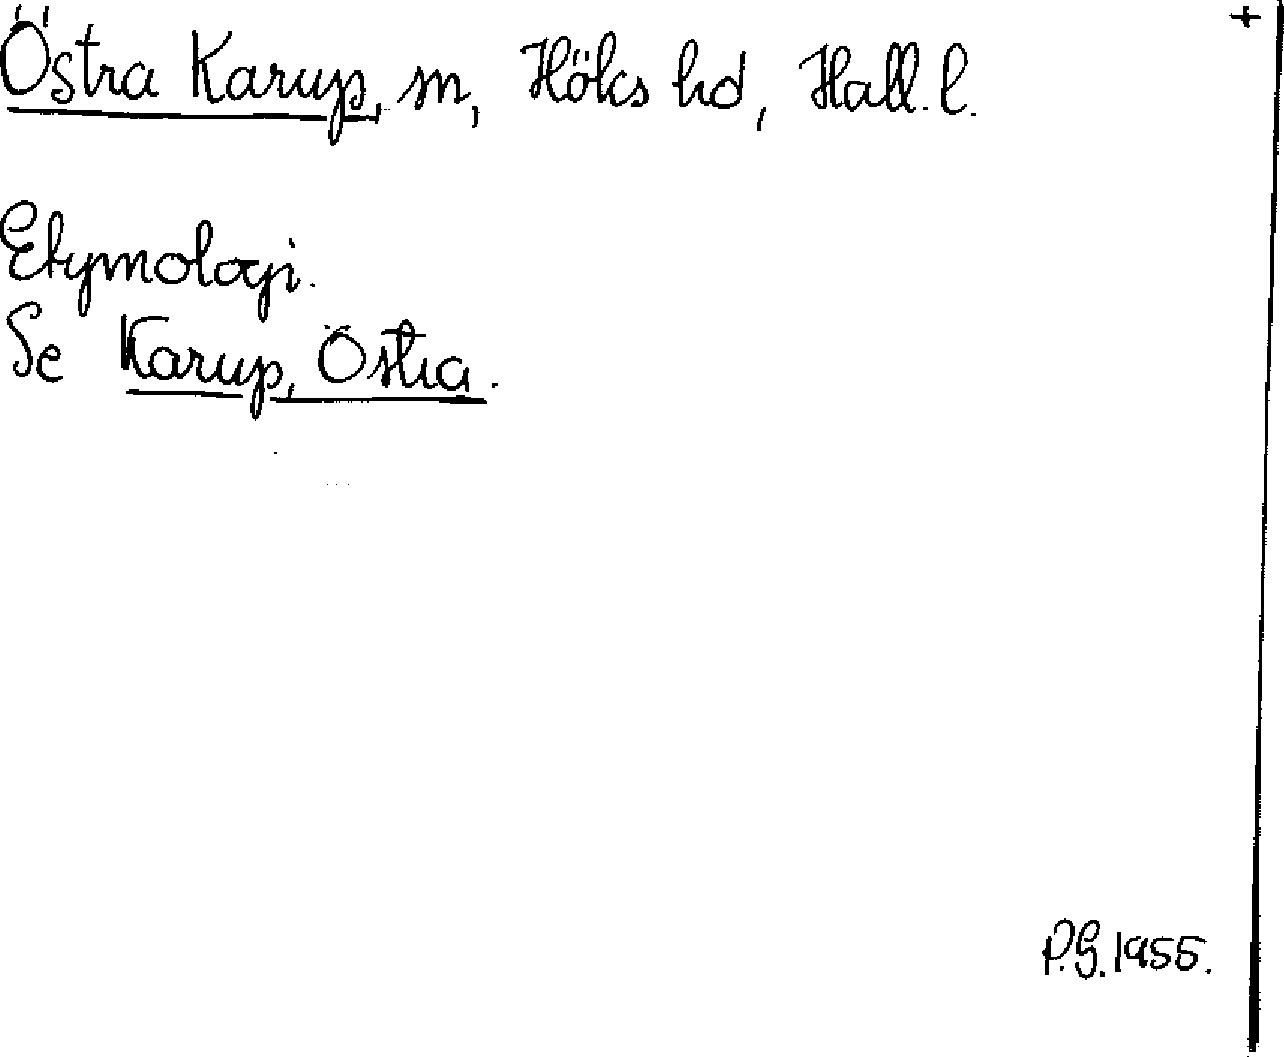 Östra Karup, sn, Höks hd, Hall. l. +
Etymologi.
Se Karup, Östra.
P.G. 1955.